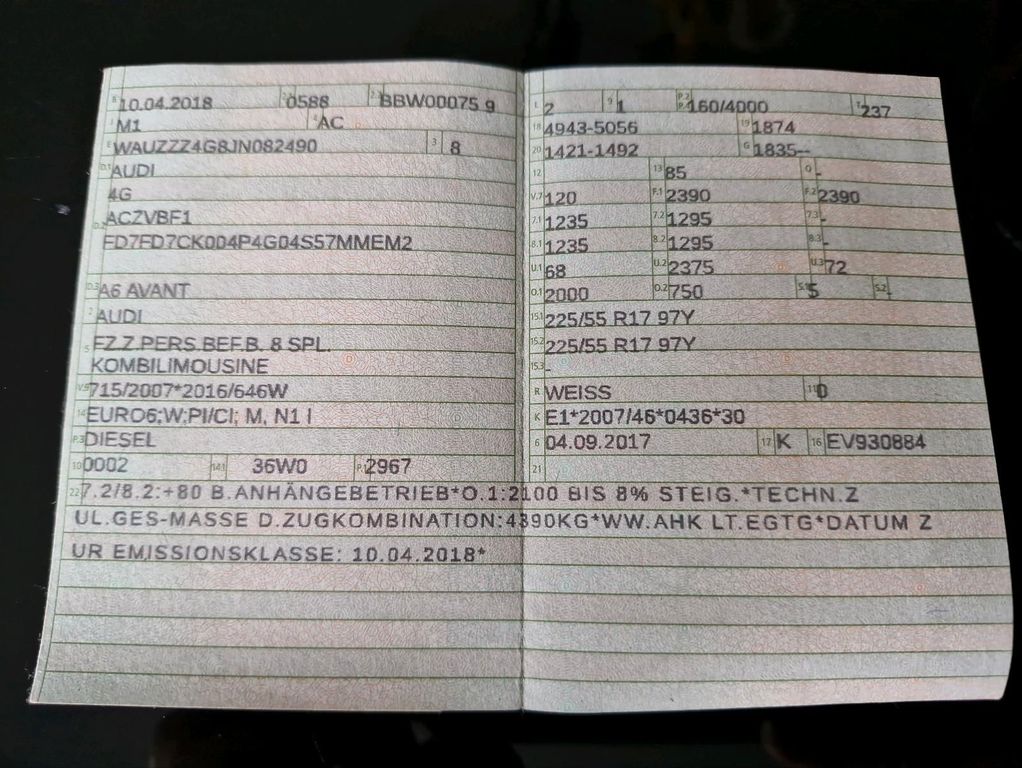 B 10.04.2018 2.1 0588 2.2 BBW00075 9
J M1 4 AC
E WAUZZZ4G8JN082490 3 8
D.1 AUDI
4G
D.2 ACZVBF1
FD7FD7CK004P4G04S57MMEM2
D.3 A6 AVANT
2 AUDI
5 FZ.Z.PERS.BEF.B. 8 SPL.
KOMBILIMOUSINE
V.9 715/2007*2016/646W
14 EURO6;W;PI/CI; M, N1 I
P.3 DIESEL
10 0002 14.1 36W0 P.1 2967
L 2 9 1 P.2 P.4 160/4000 T 237
18 4943-5056 19 1874
20 1421-1492 G 1835--
12 13 85 Q -
V.7 120 F.1 2390 F.2 2390
7.1 1235 7.2 1295 7.3 -
8.1 1235 8.2 1295 8.3 -
U.1 68 U.2 2375 U.3 72
O.1 2000 O.2 750 S.1 5 S.2 -
15.1 225/55 R17 97Y
15.2 225/55 R17 97Y
15.3 -
R WEISS 11 0
K E1*2007/46*0436*30
6 04.09.2017 17 K 16 EV930884
21
22 7.2/8.2:+80 B.ANHÄNGEBETRIEB*O.1:2100 BIS 8% STEIG.*TECHN.Z
UL.GES-MASSE D.ZUGKOMBINATION:4390KG*WW.AHK LT.EGTG*DATUM Z
UR EMISSIONSKLASSE: 10.04.2018*